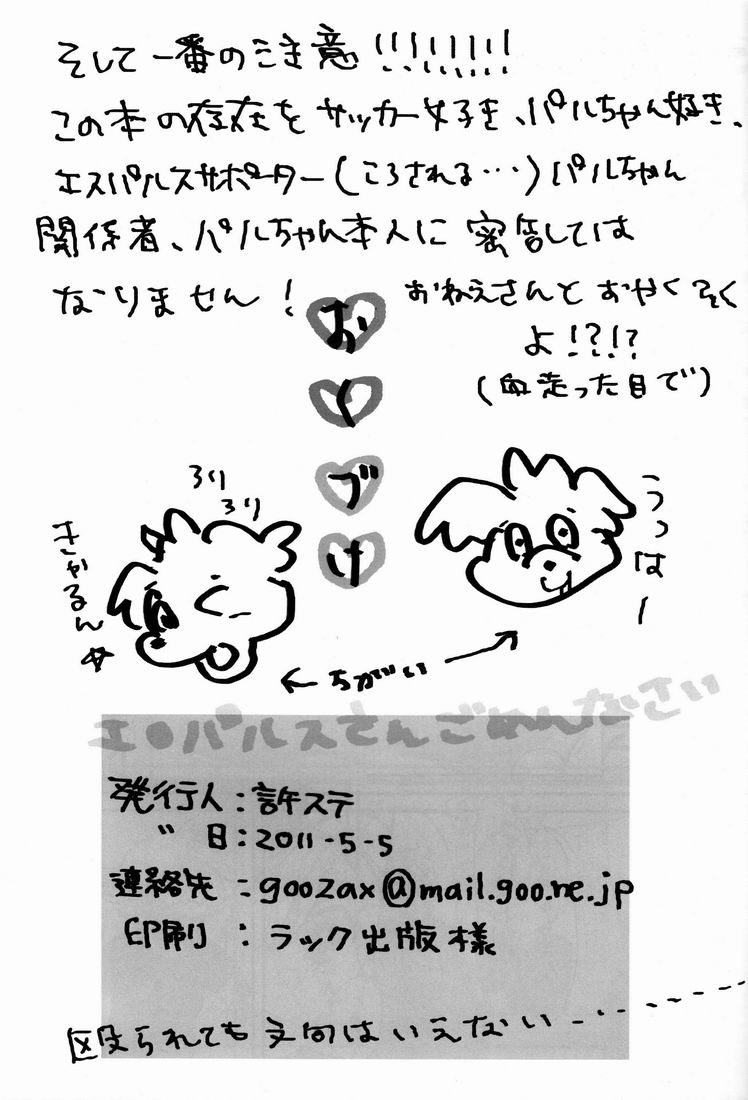 そして一番のご注意!!!!!!!!
この本の存在をサッカー好き、パルちゃん好き、
エスパルスサポーター(ころされる…)パルちゃん
関係者、パルちゃん本人に密告しては
なりません!
おねえさんとおやくそく
よ!?!?
(血走った目で)
おくづけ
ろり
ろり
きゃるん☆
うっはー
←ちがい→
エ●パルスさんごめんなさい
発行人:許ステ
〃 日:2011-5-5
連絡先:goozax@mail.goo.ne.jp
印刷:ラック出版様
殴られても文句はいえない……